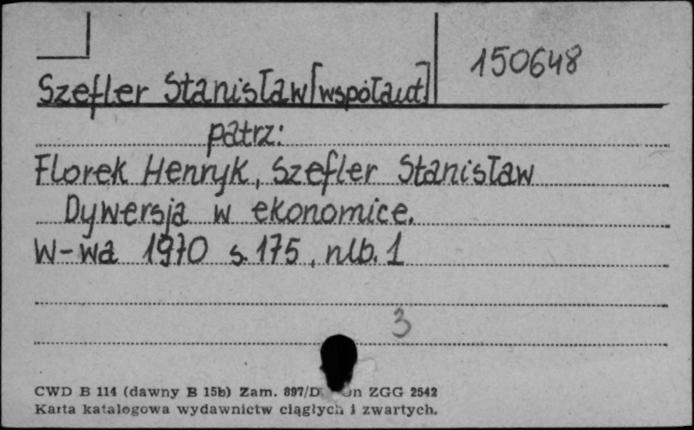 150648
Szefler Stanisław [współaut.]
patrz:
Florek Henryk, Szefler Stanisław
Dywersja w ekonomice.
W-wa 1970 s. 175, nlb. 1
3
CWD B 114 (dawny B 15b) Zam. 897/D ZGG 2542
Karta katalogowa wydawnictw ciągłych i zwartych.